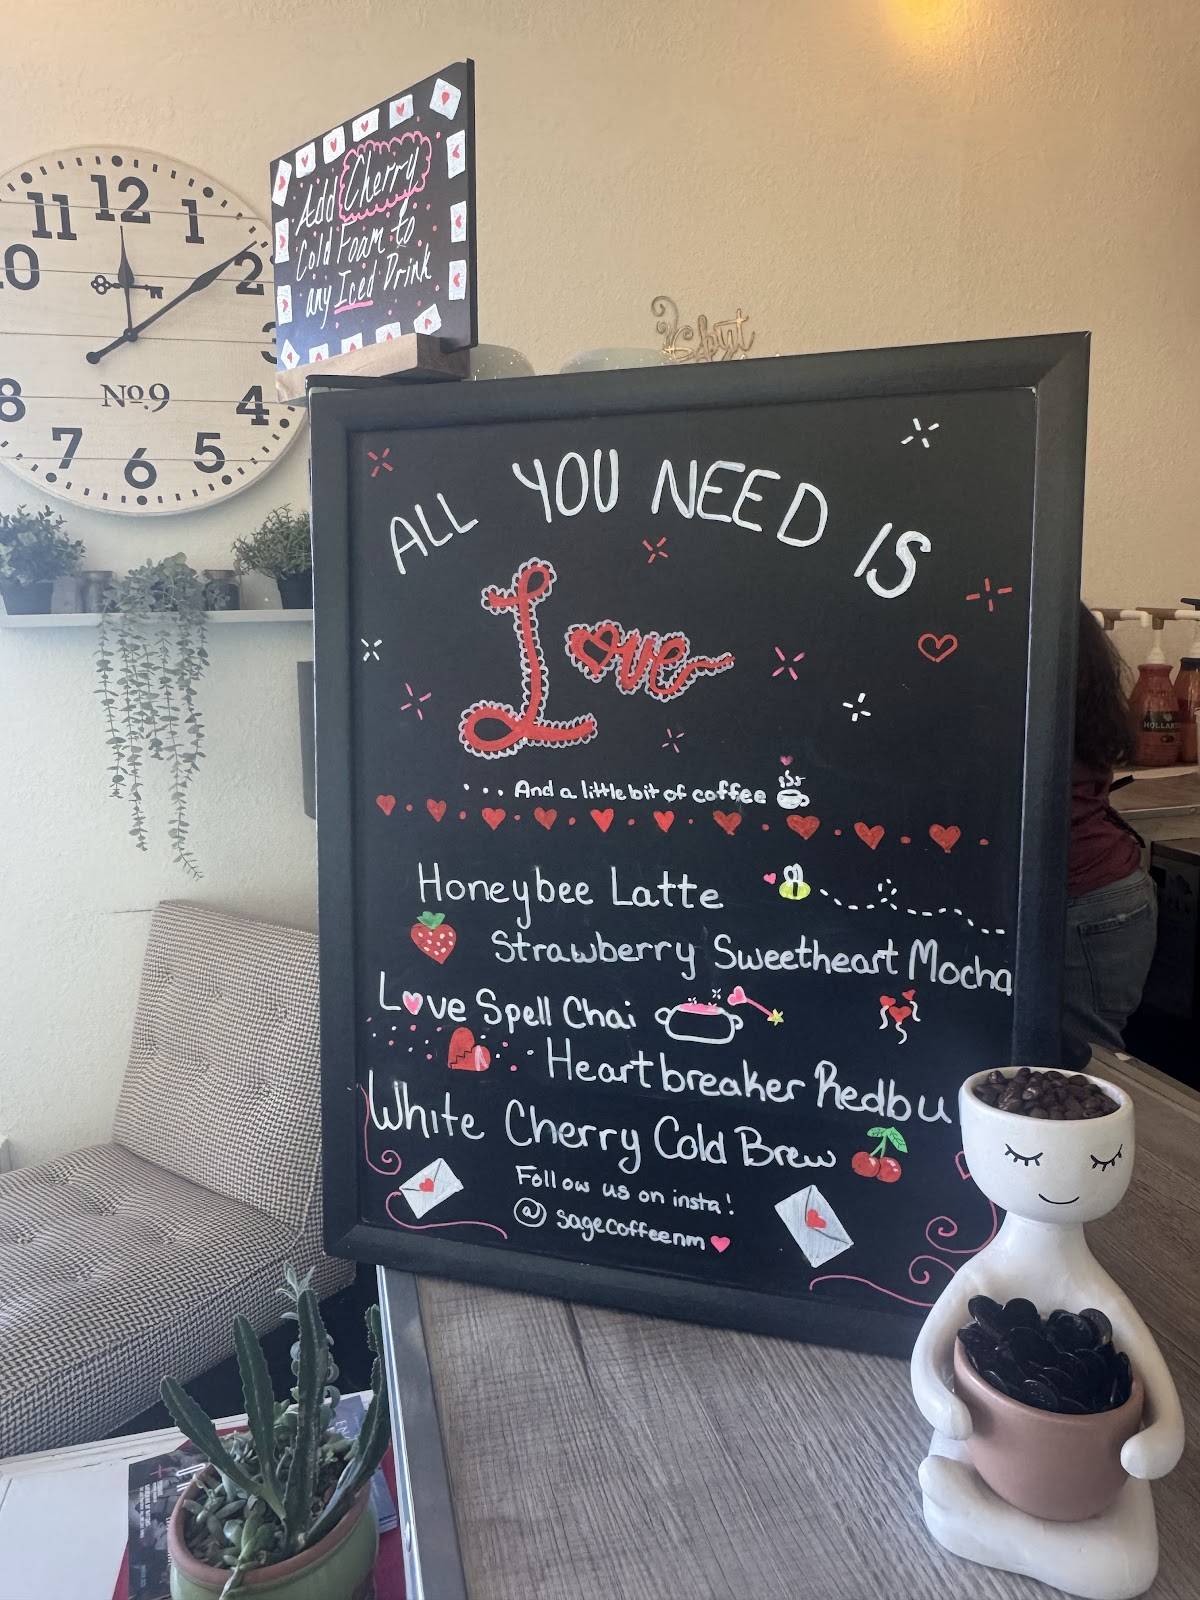 Add Cherry
Cold Foam to
any Iced Drink
12
11
1
10
2
3
8
4
7
5
6
No.9
ALL YOU NEED IS
Love
... And a little bit of coffee
Honeybee Latte
Strawberry Sweetheart Mocha
Love Spell Chai
Heartbreaker Redbu
White Cherry Cold Brew
Follow us on insta!
@sagecoffeenm